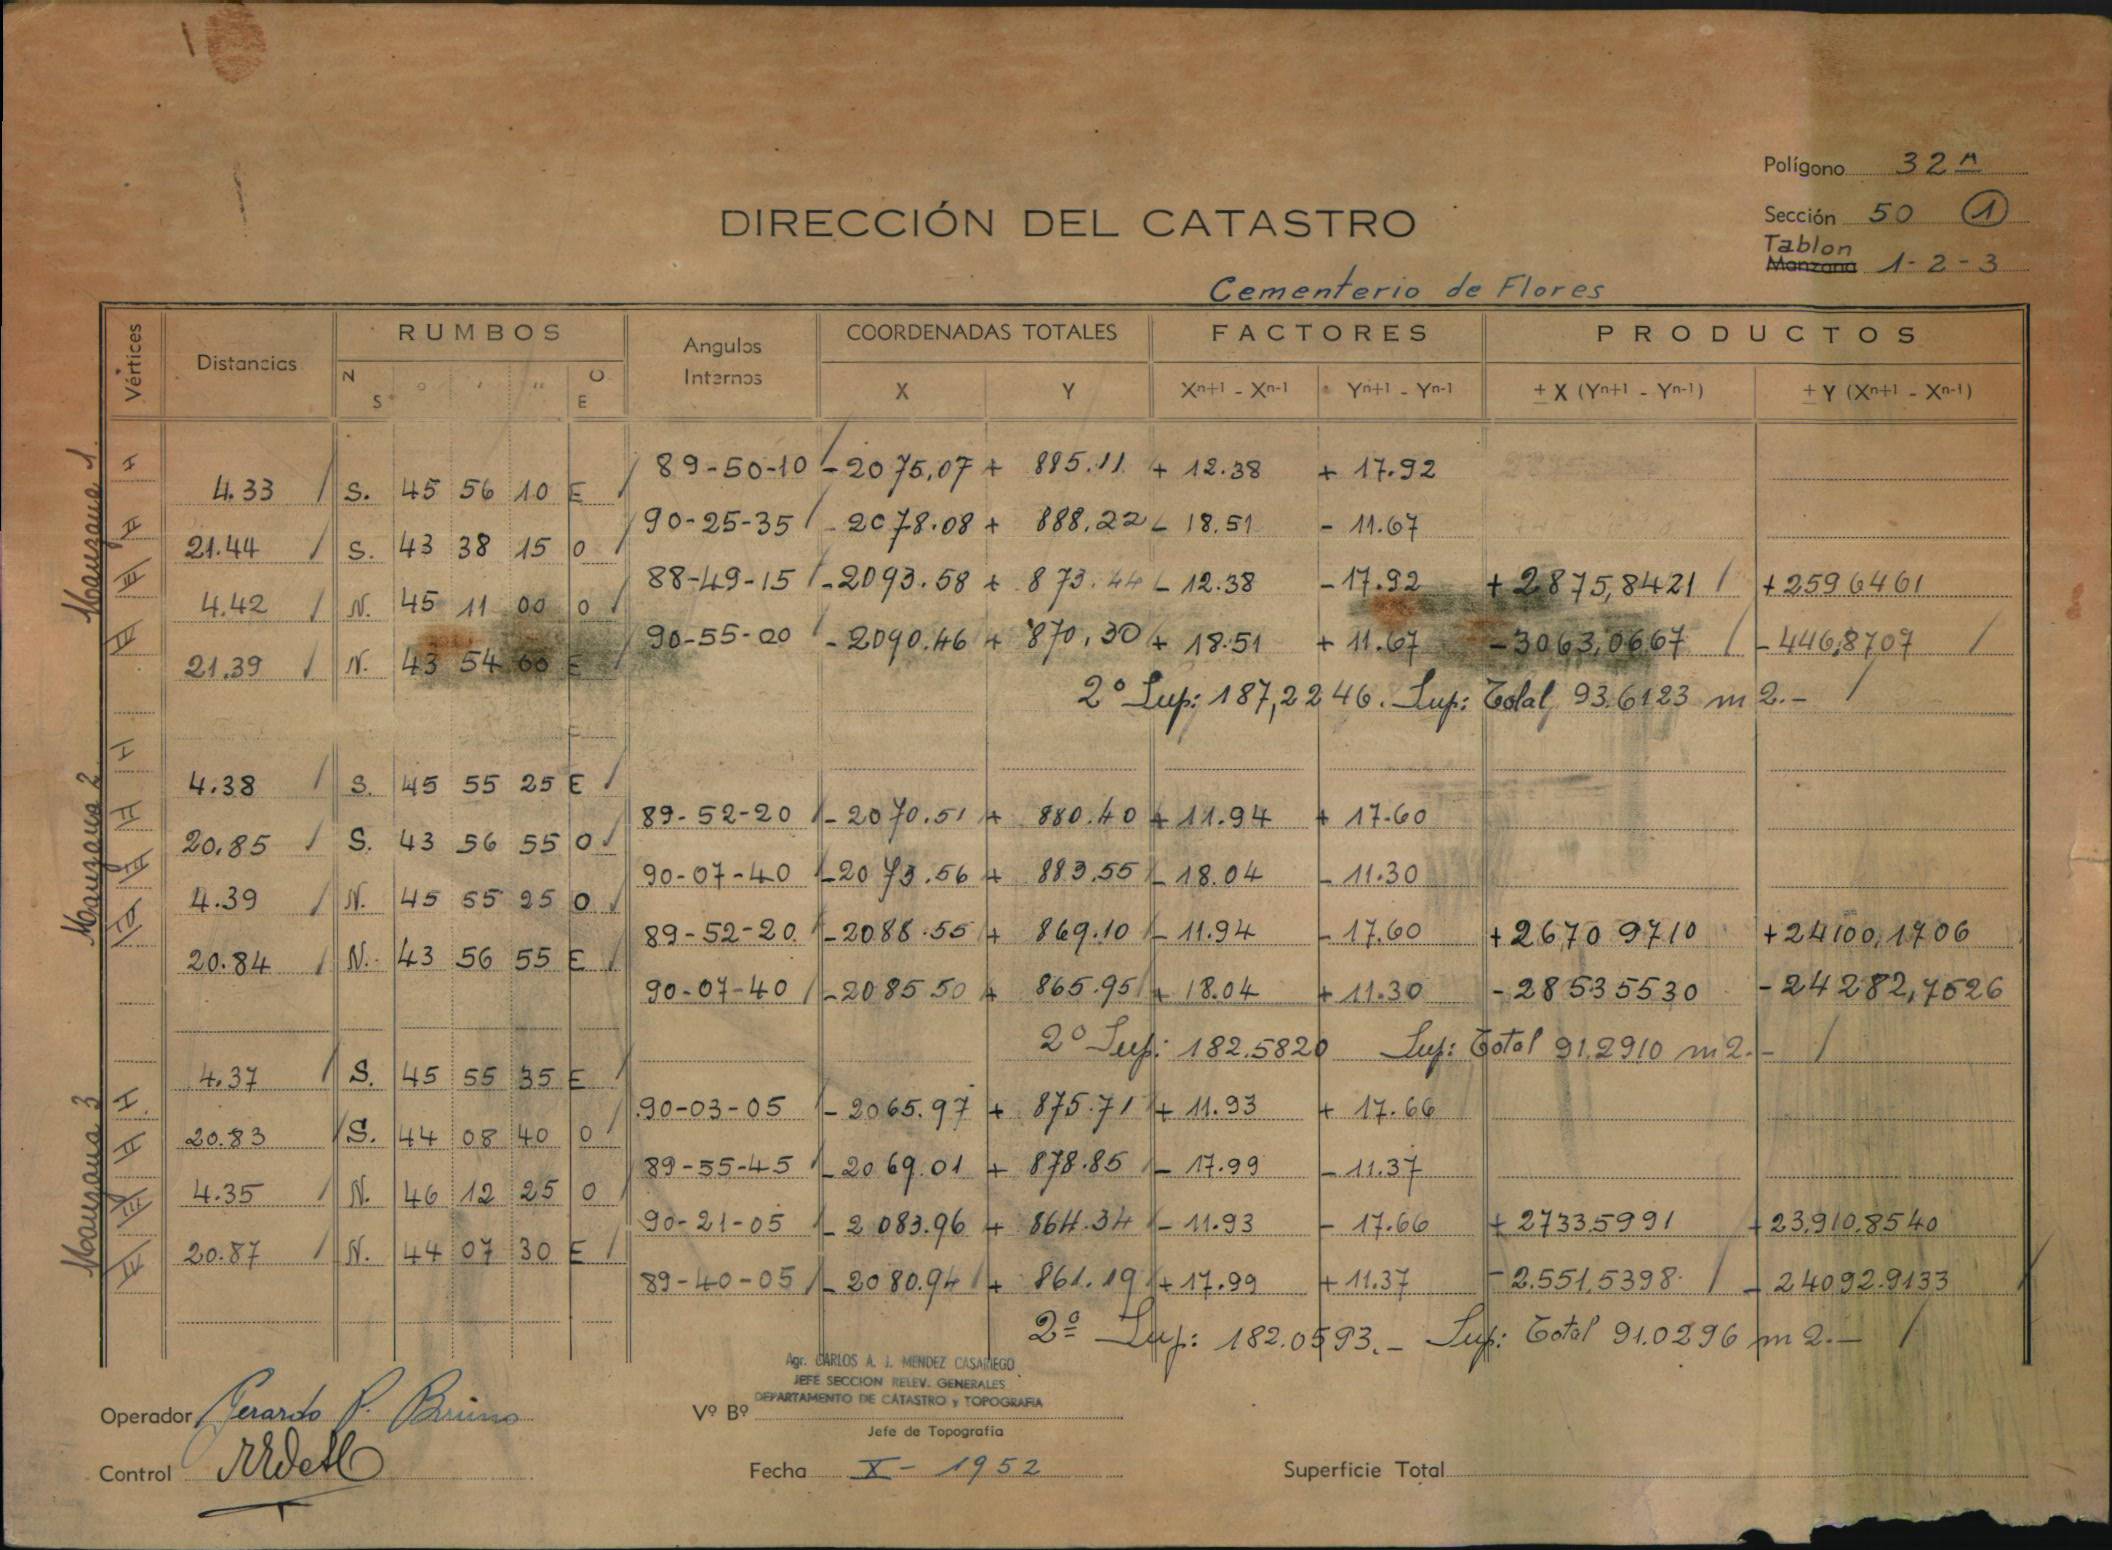 Polígono 32 A
Sección 50 1
Tablon
Manzana 1-2-3
DIRECCIÓN DEL CATASTRO
Cementerio de Flores
Vértices Distancias RUMBOS Angulos Internos COORDENADAS TOTALES FACTORES PRODUCTOS
N S ° ' " O E X Y Xn+1 - Xn-1 Yn+1 - Yn-1 ± X (Yn+1 - Yn-1) ± Y (Xn+1 - Xn-1)
Manzana 1
I 89-50-10 -2075,07 + 885.11 + 12.38 + 17.92
4.33 S. 45 56 10 E
II 90-25-35 -2078.08 + 888.22 - 18.51 - 11.67
21.44 S. 43 38 15 O
III 88-49-15 -2093.58 + 873.44 - 12.38 - 17.92 + 2875,8421 + 2596461
4.42 N. 45 11 00 O
IV 90-55-00 -2090.46 + 870,30 + 18.51 + 11.67 - 3063,0667 - 446,8707
21.39 N. 43 54 00 E
2º Sup: 187,2246. Sup: Total 93.6123 m2.-
Manzana 2
I 4.38 S. 45 55 25 E
89-52-20 -2070.51 + 880.40 + 11.94 + 17.60
II 20.85 S. 43 56 55 O
90-07-40 -2073.56 + 883.55 - 18.04 - 11.30
III 4.39 N. 45 55 25 O
89-52-20 -2088.55 + 869.10 - 11.94 - 17.60 + 26709710 + 24100,1706
IV 20.84 N. 43 56 55 E
90-07-40 -2085.50 + 865.95 + 18.04 + 11.30 - 28535530 - 24282,7526
2º Sup: 182.5820 Sup: Total 91.2910 m2.-
Manzana 3
4.37 S. 45 55 35 E
I 90-03-05 -2065.97 + 875.71 + 11.93 + 17.66
20.83 S. 44 08 40 O
II 89-55-45 -2069.01 + 878.85 - 17.99 - 11.37
4.35 N. 46 12 25 O
III 90-21-05 -2083.96 + 864.34 - 11.93 - 17.66 + 2733.5991 + 23.910.8540
20.87 N. 44 07 30 E
IV 89-40-05 -2080.94 + 861.19 + 17.99 + 11.37 - 2.551.5398 - 24092.9133
2º Sup: 182.0593.- Sup: Total 91.0296 m2.-
Agr. CARLOS A. J. MENDEZ CASARIEGO
JEFE SECCION RELEV. GENERALES
DEPARTAMENTO DE CATASTRO y TOPOGRAFIA
Operador Gerardo P. Bruno Vº Bº
Jefe de Topografía
Control Fecha X - 1952 Superficie Total